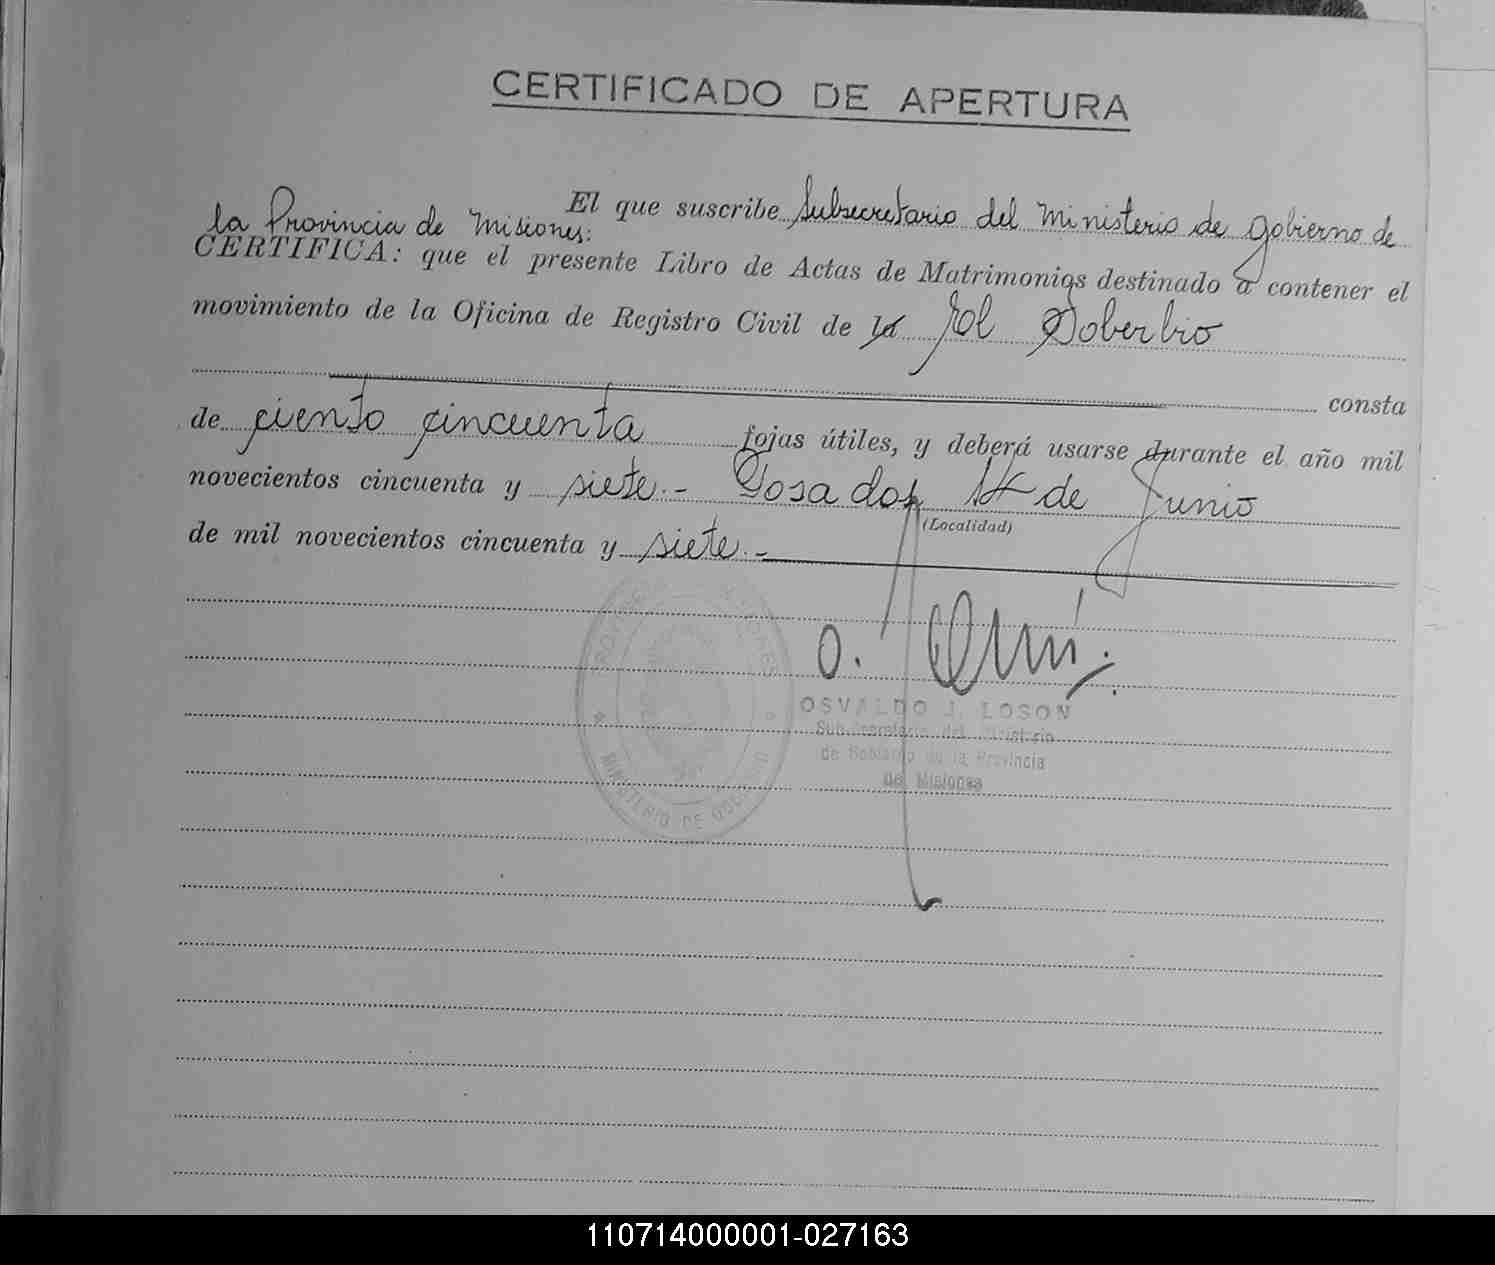 CERTIFICADO DE APERTURA
El que suscribe Subsecretario del Ministerio de Gobierno de
la Provincia de Misiones:
CERTIFICA: que el presente Libro de Actas de Matrimonios destinado a contener el
movimiento de la Oficina de Registro Civil de la El Soberbio
consta
de ciento cincuenta fojas útiles, y deberá usarse durante el año mil
novecientos cincuenta y siete.- Posadas de Junio
(Localidad)
de mil novecientos cincuenta y siete.-
PROVINCIA MISIONES
MINISTERIO DE GOBIERNO
OSVALDO J. LOSON
Sub Secretario del Ministerio
de Gobierno de la Provincia
de Misiones
110714000001-027163